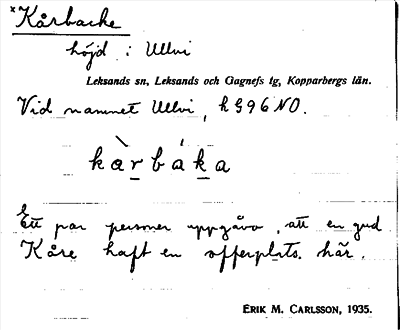 *Kårbacke
höjd i Ullvi
Leksands sn, Leksands och Gagnefs tg, Kopparbergs län.
Vid namnet Ullvi, k G96 NO.
kàrbáka
Ett par personer uppgåvo, att en gud
Kåre haft en offerplats här.
ERIK M. CARLSSON, 1935.